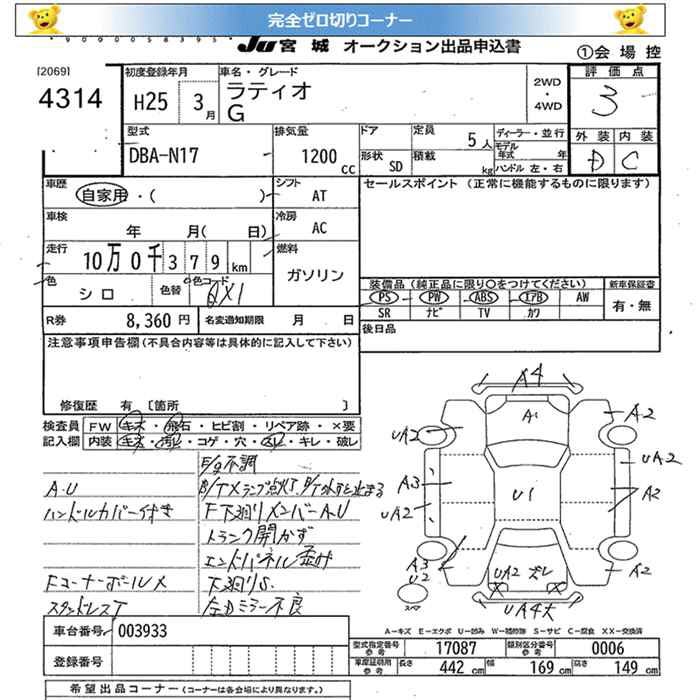 完全ゼロ切りコーナー
JU 宮城 オークション出品申込書
①会場控
[2069]
4314
初度登録年月
H25 3月
車名・グレード
ラティオ
G
2WD
・
4WD
評価点
3
外装 内装
D C
型式
DBA-N17
排気量
1200 cc
ドア
形状 SD
定員 5人
積載 kg
ディーラー・並行
モデル年式 年
ハンドル 左・右
車歴 自家用・( )
シフト AT
セールスポイント (正常に機能するものに限ります)
車検 年 月( 日)
冷房 AC
走行 10万0千379km
燃料 ガソリン
色 シロ 色替 色コード QX1
装備品 (純正品に限り○をつけてください)
新車保証書
PS PW ABS エアB AW
SR ナビ TV カワ
有・無
R券 8,360円 名変通知期限 月 日
後日品
注意事項申告欄 (不具合内容等は具体的に記入して下さい)
修復歴 有 〔箇所 〕
検査員 FW キズ・飛石・ヒビ割・リペア跡・×要
記入欄 内装 キズ・汚レ・コゲ・穴・スレ・キレ・破レ
E/g不調
A.U
B/Tメランプ点灯、B/T外すと止まる
ハンドルカバー付き
F下廻りメンバーA.U
トランク開かず
エンドパネル歪み
FコーナーポールX
下廻りS
スタッドレスT
左Dミラー不良
A4
A1
A2
UA2
A2
UA2
A3
U1
A2
UA2
A3
U2
UA2 ズレ
A2
UA4大
A-キズ E-エクボ U-凹み W-補修跡 S-サビ C-腐食 XX-交換済
車台番号 003933
登録番号
型式指定番号 参考 17087 類別区分番号 参考 0006
車庫証明用 参考 長さ 442 cm 幅 169 cm 高さ 149 cm
希望出品コーナー (コーナーは各会場により異なります。)